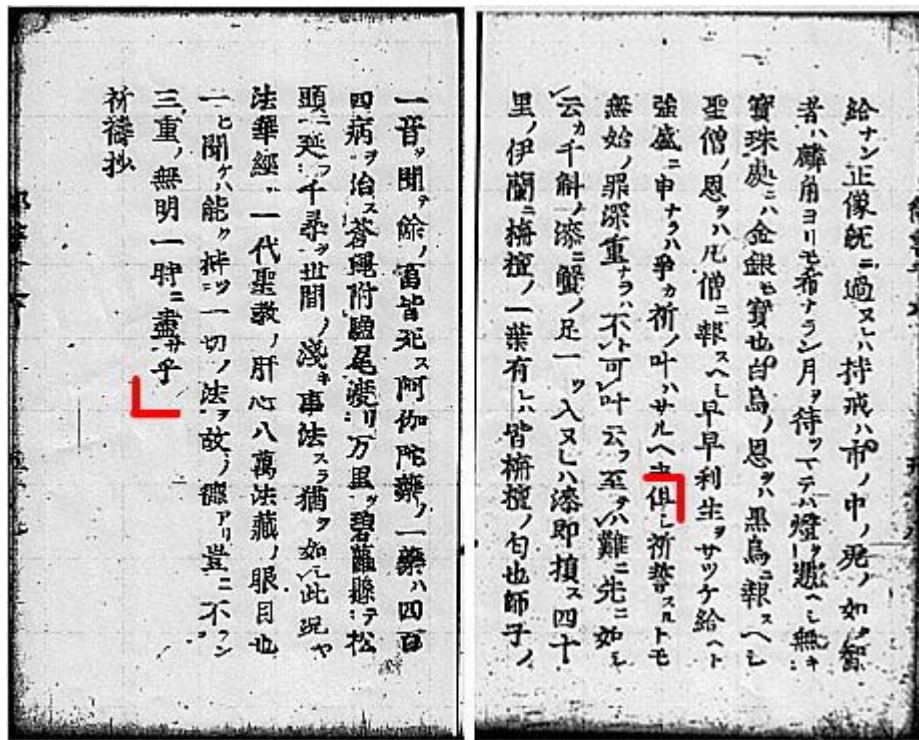 給ナン正像既ニ過ヌレハ持戒ハ市ノ中ノ虎ノ如ク智
者ハ麟角ヨリモ希ナラン月ヲ待ツマテハ燈ヲ憑ヘシ無キ
寶珠處ニハ金銀モ寶也白烏ノ恩ヲハ黒烏ニ報スヘシ
聖僧ノ恩ヲハ凡僧ニ報スヘシ早早利生ヲサツケ給ヘト
強盛ニ申ナラハ爭カ祈ノ叶ハサルヘキ但シ祈誓スルトモ
無始ノ罪深重ナラハ不可叶云フ至ラハ難ニ先ニ如シ
云カ千斛ノ漆ニ蟹ノ足一ツ入ヌレハ漆即損ス四十
里ノ伊蘭ニ栴檀ノ一葉有レハ皆栴檀ノ匂也師子ノ
一音ヲ聞テ餘ノ畜皆死ス阿伽陀藥ノ一藥ハ四百
四病ヲ治ス蒼蠅附驥尾渡リ万里ヲ碧蘿懸テ松
頭ニ延フ千尋ヲ世間ノ淺キ事法スラ猶ヲ如シ此況ヤ
法華經ハ一代聖教ノ肝心八萬法藏ノ眼目也
一ヒ聞ケハ能ク持ツ一切ノ法ヲ故ノ德アリ豈ニ不ラン
三重ノ無明一時ニ盡サ乎
祈禱抄